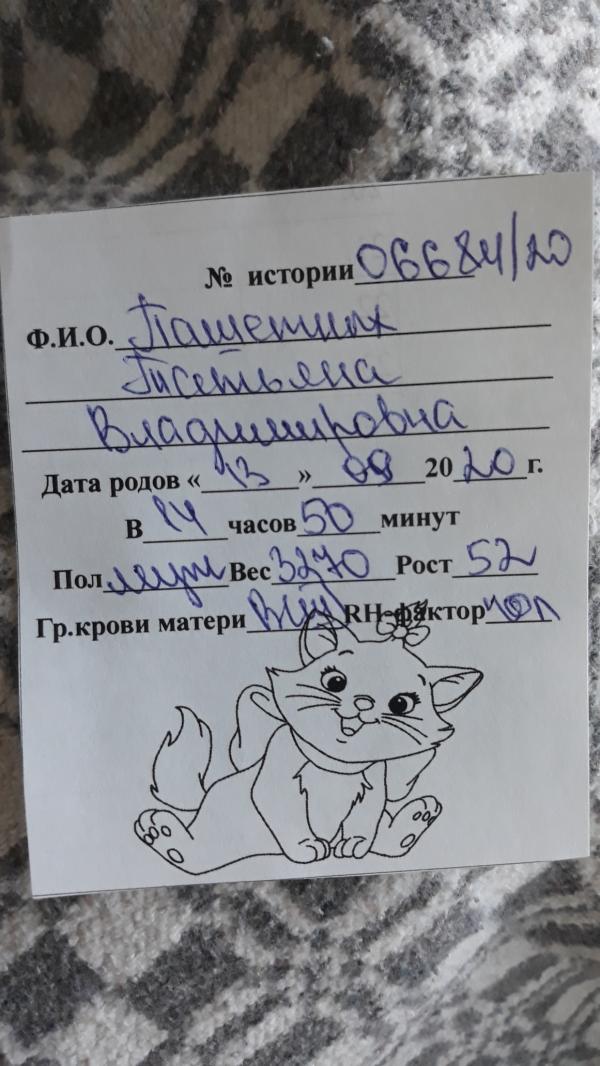 № истории 06684/20
Ф.И.О. Пашетных
Татьяна
Владимировна
Дата родов « 13 » 09 20 20 г.
В 14 часов 50 минут
Пол муж Вес 3270 Рост 52
Гр.крови матери RH-фактор